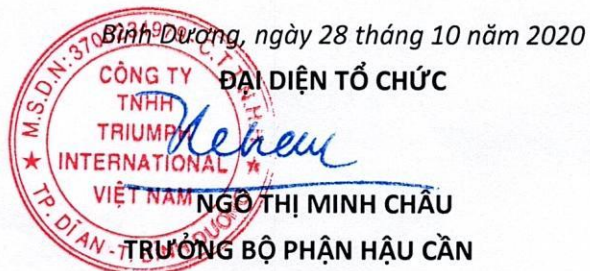 Bình Dương, ngày 28 tháng 10 năm 2020
ĐẠI DIỆN TỔ CHỨC
CÔNG TY
TNHH
TRIUMPH
INTERNATIONAL
VIỆT NAM
M.S.D.N:
TP. DĨ AN - T. BÌNH DƯƠNG
NGÔ THỊ MINH CHÂU
TRƯỞNG BỘ PHẬN HẬU CẦN